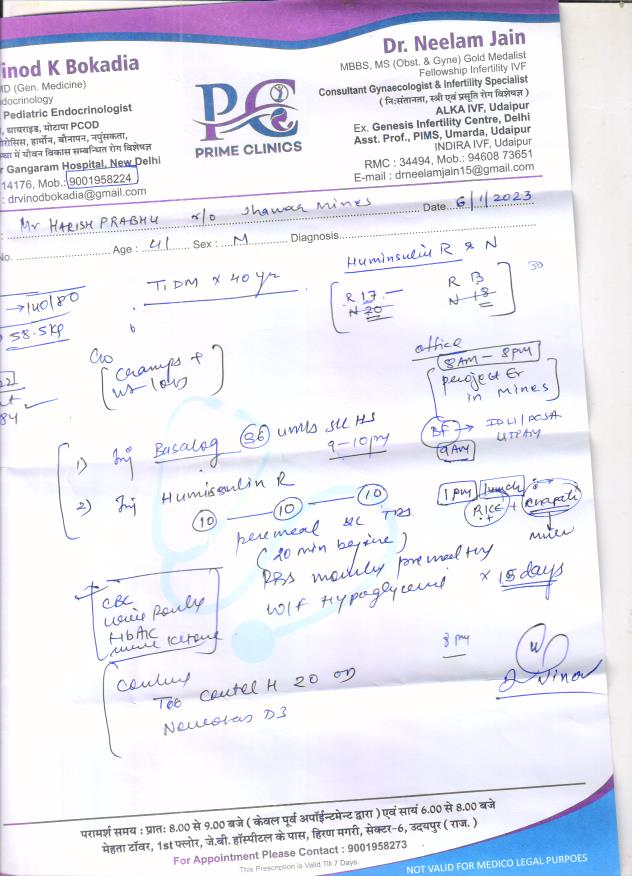 inod K Bokadia
MD (Gen. Medicine)
docrinology
Pediatric Endocrinologist
, थायराइड, मोटापा PCOD
रोसिस, हार्मोन, बौनापन, नपुंसकता,
स्था में यौवन विकास सम्बन्धित रोग विशेषज्ञ
r Gangaram Hospital, New Delhi
14176, Mob.: 9001958224
: drvinodbokadia@gmail.com
PRIME CLINICS
Dr. Neelam Jain
MBBS, MS (Obst. & Gyne) Gold Medalist
Fellowship Infertility IVF
Consultant Gynaecologist & Infertility Specialist
( नि:संतानता, स्त्री एवं प्रसूति रोग विशेषज्ञ )
ALKA IVF, Udaipur
Ex. Genesis Infertility Centre, Delhi
Asst. Prof., PIMS, Umarda, Udaipur
INDIRA IVF, Udaipur
RMC : 34494, Mob.: 94608 73651
E-mail : drneelamjain15@gmail.com
Mr HARISH PRABHU r/o Jhawar mines Date 6/1/2023
No. Age : 41 Sex : M Diagnosis
Huminsulin R & N
→140/80
T1DM x 40 yr
R 17 R 13 30
N 20 N 18
58.5kg
office
8AM – 8pm
c/o cramps +
wt loss
project Er
in Mines
84
1) Inj Basalog 36 units s/c HS
9-10pm
BF → IDLI/DOSA
UPMA
9AM
2) Inj Huminsulin R
10 — 10 — 10
1pm lunch
RICE + chapati
premeal s/c TDS
(20 min before)
CBC
HbA1c
urine ketone
RBS monitor premeal
W/F Hypoglycemi x 15 days
8pm
Continue
20 OD
D3
Vinod
परामर्श समय : प्रातः 8.00 से 9.00 बजे ( केवल पूर्व अपॉईन्टमेन्ट द्वारा ) एवं सायं 6.00 से 8.00 बजे
मेहता टॉवर, 1st फ्लोर, जे.बी. हॉस्पीटल के पास, हिरण मगरी, सेक्टर-6, उदयपुर ( राज. )
For Appointment Please Contact : 9001958273
This Prescription is Valid Till 7 Days.
NOT VALID FOR MEDICO LEGAL PURPOES